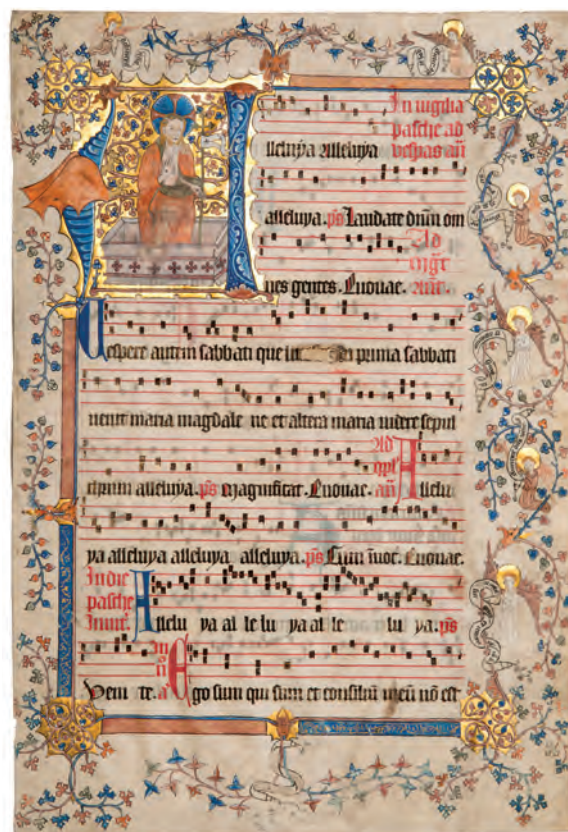 In vigilia
pasche ad
lleluya alleluya vesp̄as an̄
alleluya. ps̄ Laudate dn̄m om
Ad
nes gentes. Euouae. an̄t.
Vespere autem sabbati que in prima sabbati
uenit maria magdale ne et altera maria videre sepul
Ad
chrum alleluya. ps̄ magnificat. Euouae. an̄ Allelu
ya alleluya alleluya alleluya. ps̄ Cum īuoc. Euouae.
In die
pasche
Inuit. Allelu ya al le lu ya al le lu ya. ps̄
In
Veni te. a Ego sum qui sum et consiliū meū nō est